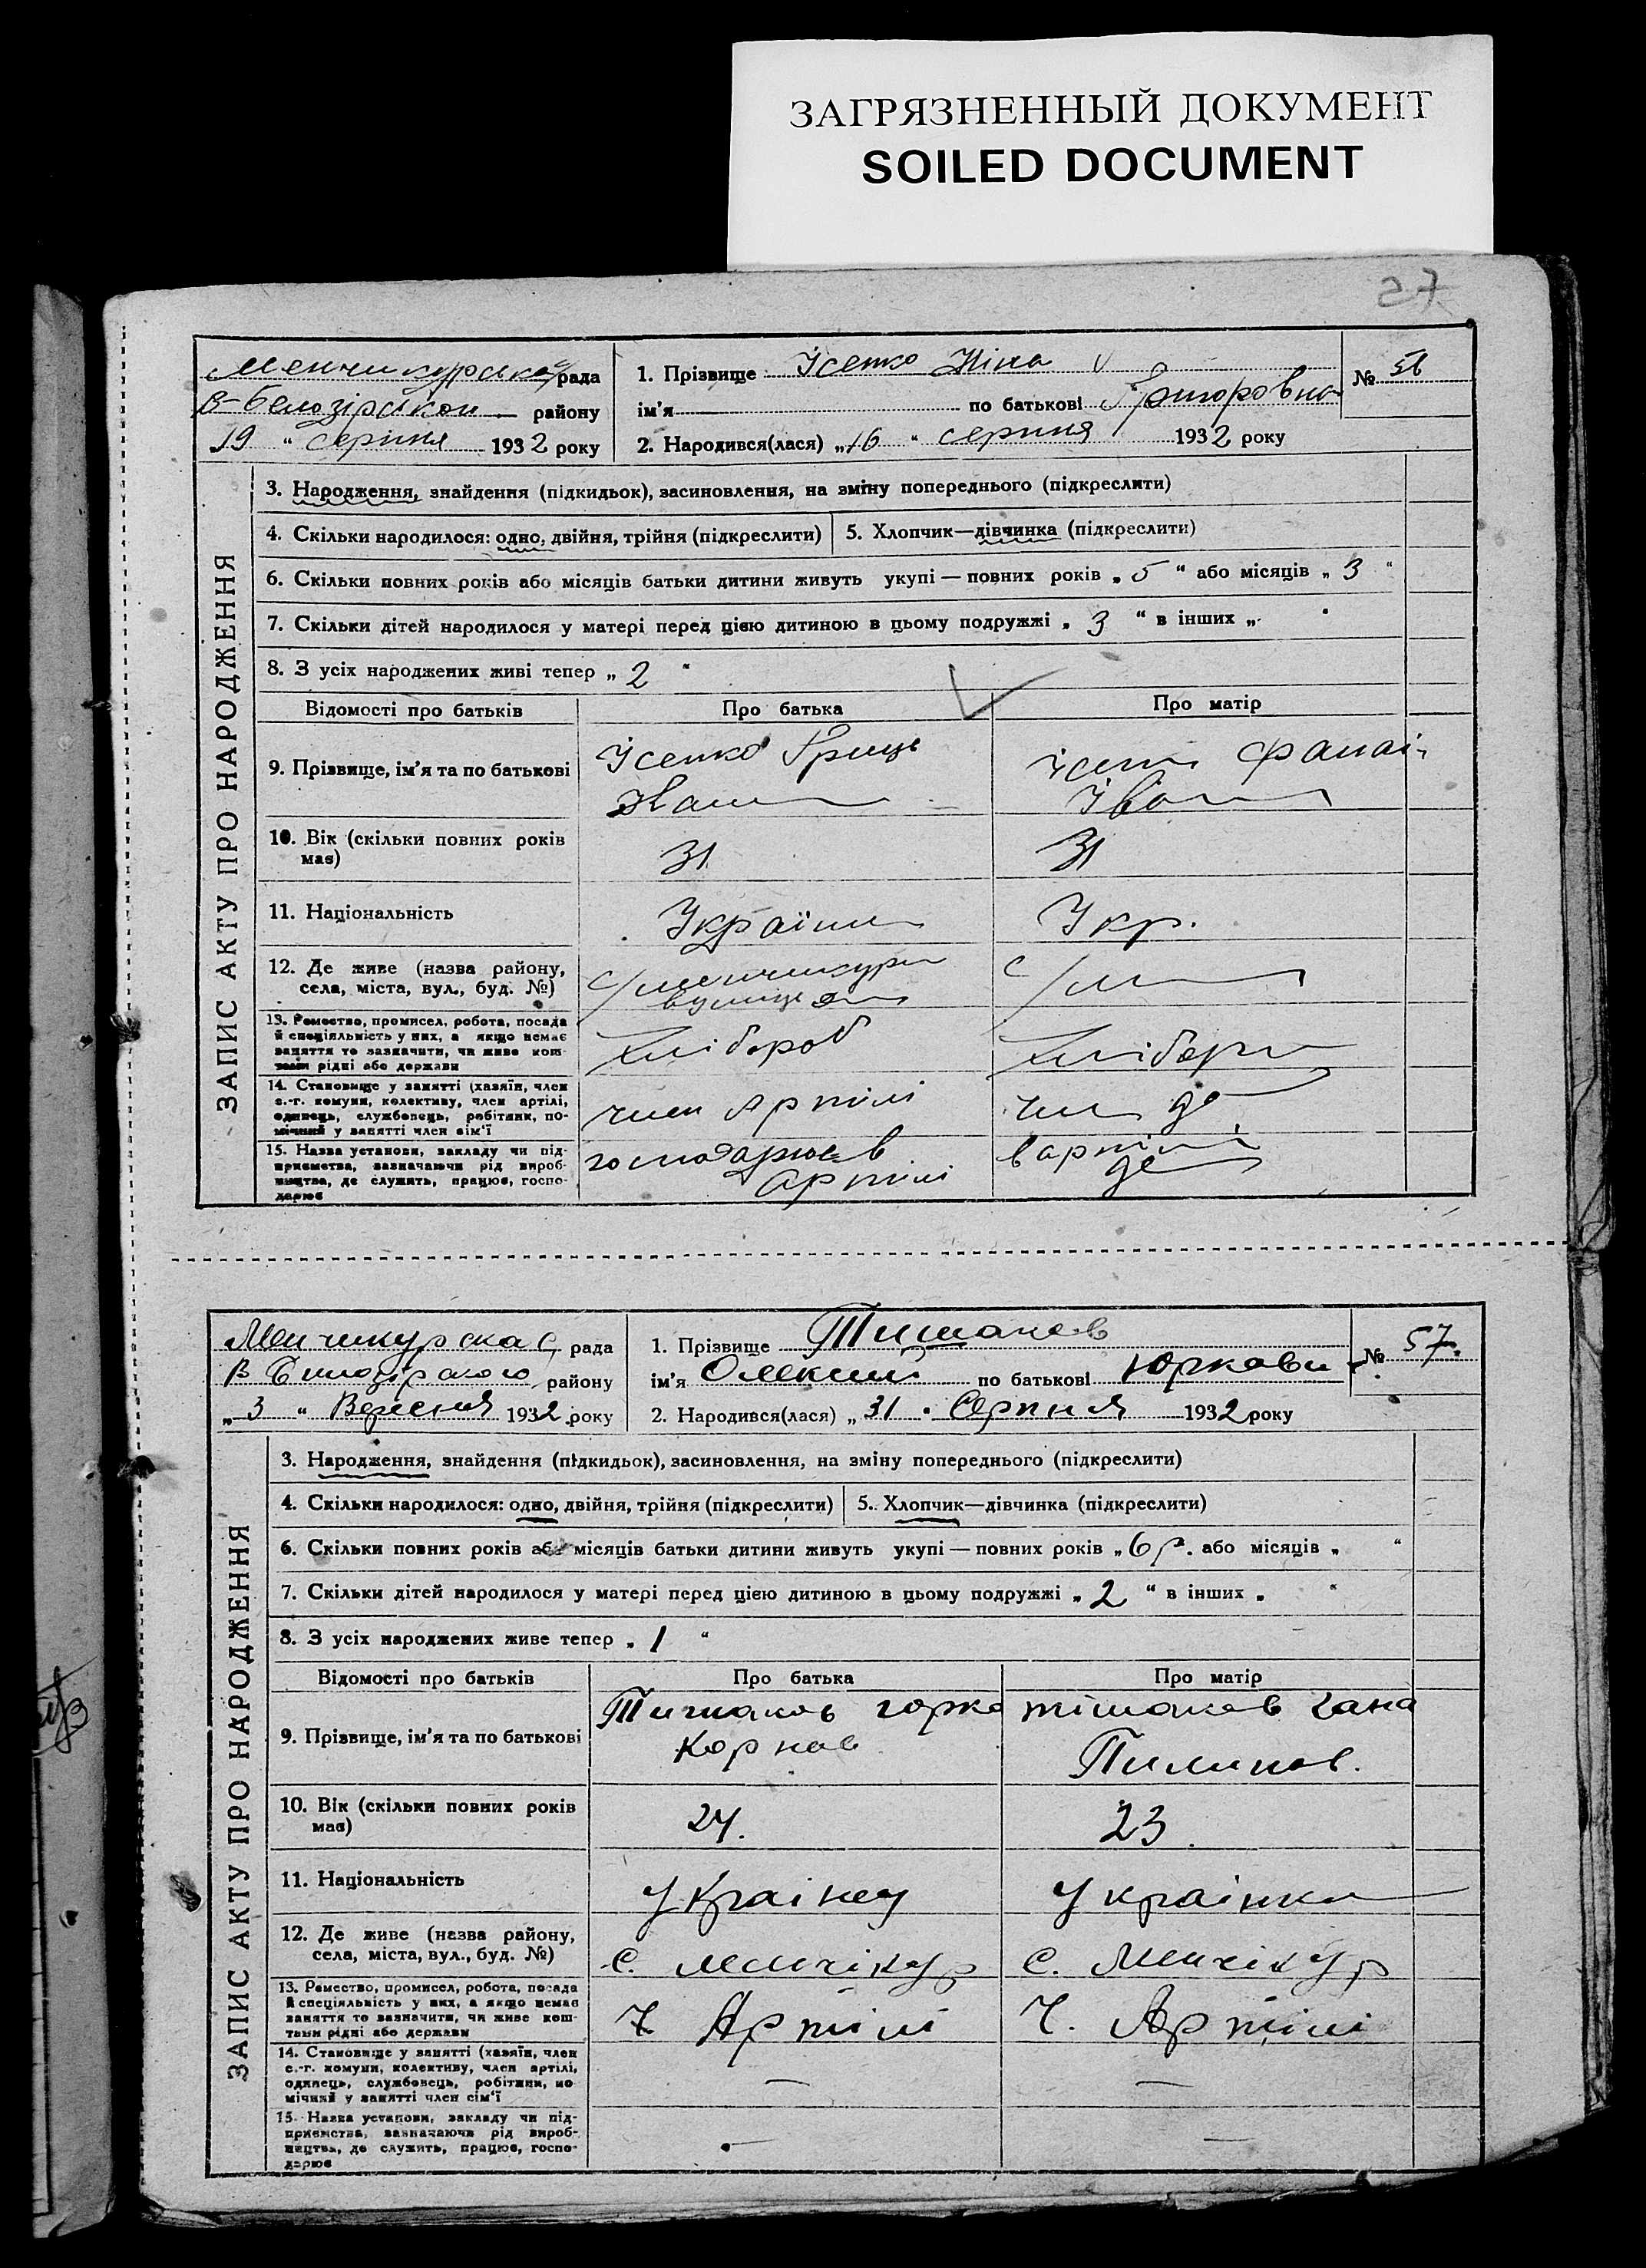 ЗАГРЯЗНЕННЫЙ ДОКУМЕНТ
SOILED DOCUMENT
27
Менчикурська рада
району
19 " серпня 1932 року
1. Прізвище Ісенко Ніна
ім'я по батькові Григоровна
2. Народився(лася) „16 " серпня 1932 року
№ 56
ЗАПИС АКТУ ПРО НАРОДЖЕННЯ
3. Народження, знайдення (підкидьок), засиновлення, на зміну попереднього (підкреслити)
4. Скільки народилося: одно, двійня, трійня (підкреслити)
5. Хлопчик—дівчинка (підкреслити)
6. Скільки повних років або місяців батьки дитини живуть укупі — повних років „ 5 " або місяців „ 3 "
7. Скільки дітей народилося у матері перед цією дитиною в цьому подружжі „ 3 " в інших „ "
8. З усіх народжених живі тепер „ 2 "
Відомості про батьків
Про батька
Про матір
9. Прізвище, ім'я та по батькові
Ісенко Гриць
Іван
10. Вік (скільки повних років
має)
31
31
11. Національність
Україн
Укр.
12. Де живе (назва району,
села, міста, вул., буд. №)
с/менчикури
вулиця
с/м
13. Ремество, промисел, робота, посада
й спеціяльність у них, а якщо немає
заняття то зазначити, чи живе кош-
тами рідні або держави
Хлібороб
Хлібор
14. Становище у занятті (хазяїн, член
с.-г. комуни, колективу, член артілі,
одинець, службовець, робітник, по-
мічний у занятті член сім'ї
член Артілі
член до
15. Назва установи, закладу чи під-
приємства, зазначаючи рід вироб-
ництва, де служить, працює, госпо-
дарює
господарює в
Артілі
в артілі
до
Менчикурска рада
В Билозірского району
„ 3 " Вересня 1932 року
1. Прізвище Тишаков
ім'я Олексий по батькові Юркови
2. Народився(лася) „ 31 " Серпня 1932 року
№ 57.
ЗАПИС АКТУ ПРО НАРОДЖЕННЯ
3. Народження, знайдення (підкидьок), засиновлення, на зміну попереднього (підкреслити)
4. Скільки народилося: одно, двійня, трійня (підкреслити)
5. Хлопчик—дівчинка (підкреслити)
6. Скільки повних років або місяців батьки дитини живуть укупі — повних років „ 6 р. або місяців „ "
7. Скільки дітей народилося у матері перед цією дитиною в цьому подружжі „ 2 " в інших „ "
8. З усіх народжених живе тепер „ 1 "
Відомості про батьків
Про батька
Про матір
9. Прізвище, ім'я та по батькові
Тишаков горка
Корнов
тішаков гана
Пилипов.
10. Вік (скільки повних років
має)
24.
23.
11. Національність
Украінец
Украінка
12. Де живе (назва району,
села, міста, вул., буд. №)
с. Менчікур
с. Менчікур
13. Ремество, промисел, робота, посада
й спеціяльність у них, а якщо немає
заняття то зазначити, чи живе кош-
тами рідні або держави
Ч Артілі
Ч. Артілі
14. Становище у занятті (хазяїн, член
с.-г. комуни, колективу, член артілі,
одинець, службовець, робітник, по-
мічний у занятті член сім'ї
—
—
15. Назва установи, закладу чи під-
приємства, зазначаючи рід вироб-
ництва, де служить, працює, госпо-
дарює
—
—